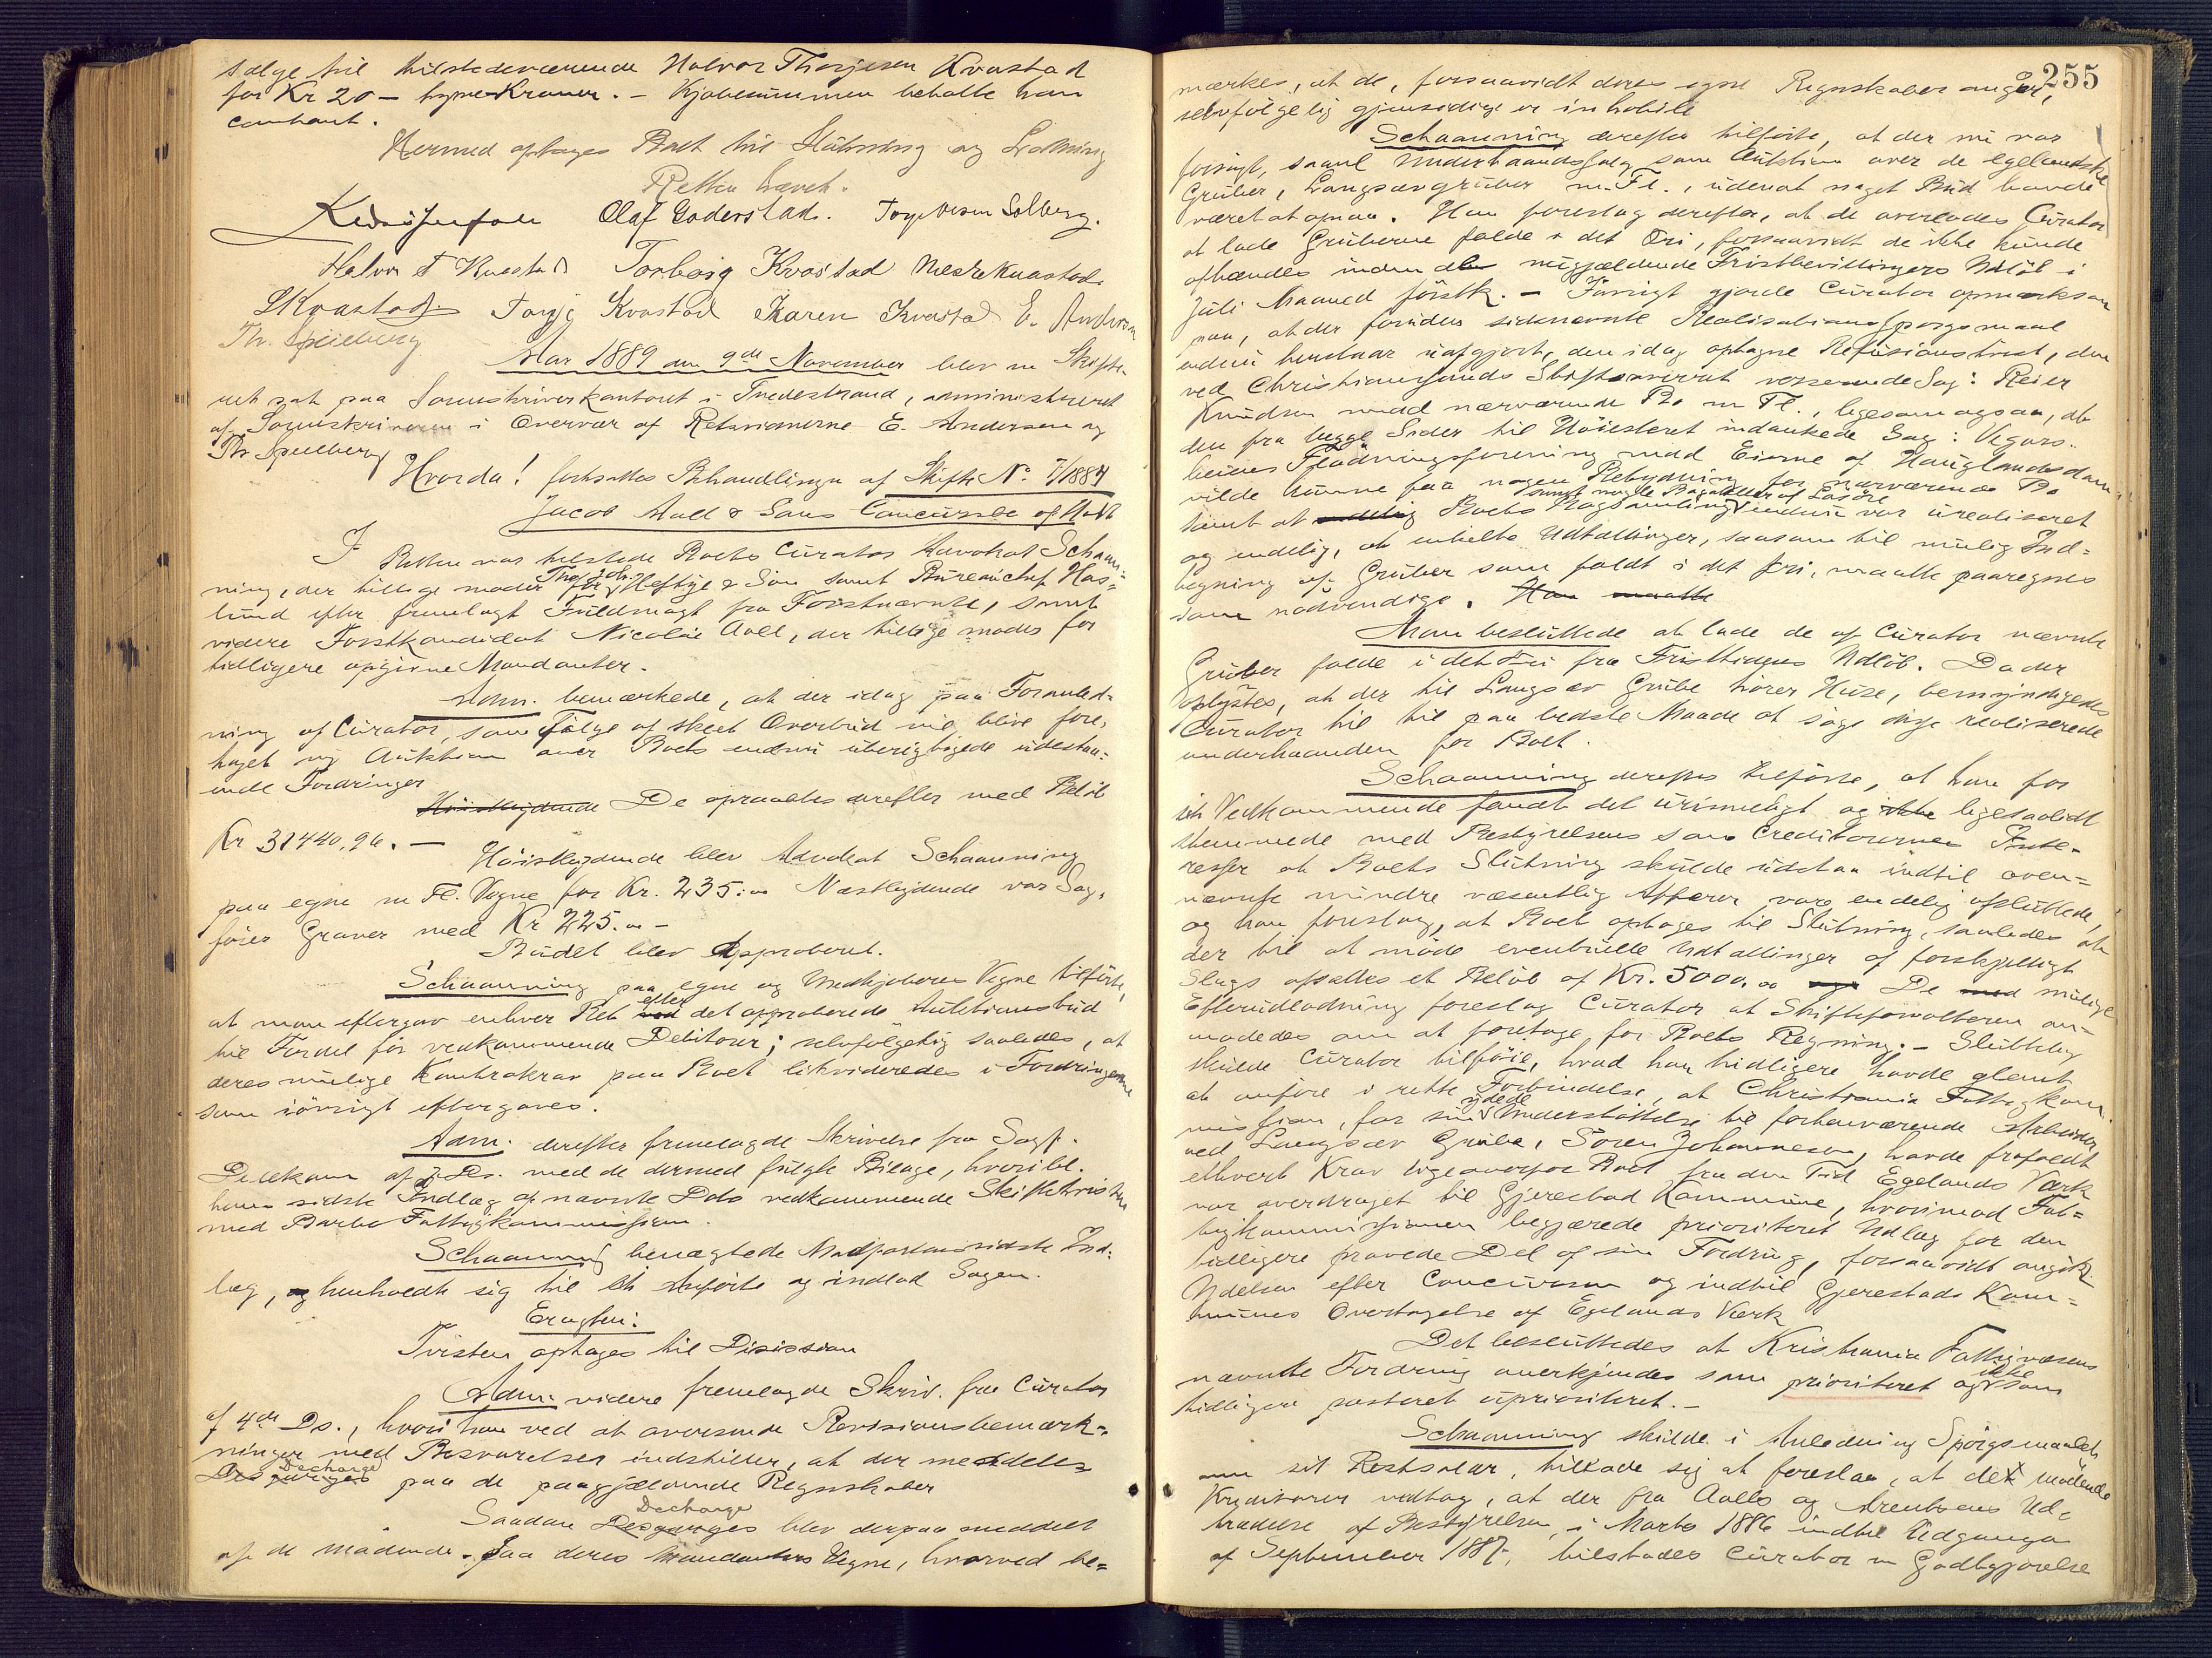 sælge til tilstedeværende Halvor Thorjesen Kvastad
for Kr 20 – tyve Kroner. – Kjøbesummen betalte han
contant.
Hermed optages Boet til Slutning og Lodning
Retten hævet.
Olaf Goderstad. Tarje Olsen Solberg.
Halvor T Kvastad Torborg Kvastad Niels Kvastad.
S Kvastad Tarje Kvastad Karen Kvastad E. Andersen
Th. Spilleberg
Aar 1889 den 9de November blev en Skifte-
ret sat paa Sorenskriverkontoret i Tvedestrand, administreret
af Sorenskriveren i Overvær af Retsvidnerne E. Andersen og
Th. Spilleberg
Hvorda! fortsattes Behandlingen af Skifte No 7/1884
Jacob Aall & Søns Concursbo af Holt
I Retten var tilstede Boets Curator Advokat Schaan-
ning, der tillige møder for Thos. Joh. Heftye & Søn samt Bureauchef Has-
lund efter fremlagt Fuldmagt fra Forstnævnte, samt
videre Forstkandidat Nicolai Aall, der tillige møder for
tidligere opgivne Mandanter.
Adm. bemærkede, at der idag paa Foranled-
ning af Curator, som Følge af skeet Overbud vil blive fore-
taget ny Auktion over Boets endnu uberigtigede udestaa-
ende Fordringer
Høistbydende De opraabtes derefter med Beløb
Kr 31440,96. – Høistbydende blev Advokat Schaanning
paa egne m Fl. Vegne for Kr. 235.00 Næstbydende var Sag-
fører Graver med Kr 225.00 –
Budet blev Approberet.
Schaanning paa egne og Medkjøberes Vegne tilførte,
at man eftergav enhver Ret efter det approberede Auktionsbud
til Fordel for vedkommende Debitorer; selvfølgelig saaledes, at
deres mulige Kontrakrav paa Boet likvideredes i Fordringerne
som iøvrigt eftergaves.
Adm. derefter fremlagde Skrivelse fra Sagf.
af 7. Ds. med de dermed fulgte Bilage, hvori bl.
hans sidste Indlæg af nævnte Dato vedkommende Skiftetvisten
med Barbo Fattigkommission.
Schaanning benægtede Modpartens sidste Ind-
læg, og henholdt sig til sit Anførte og indlod Sagen.
Eragtet:
Tvisten optages til Disission
Adm. videre fremlagde Skriv. fra Curator
af 4de Ds., hvori han ved at oversende Revisionsbemærk-
ninger med Besvarelser indstiller, at der meddeles
Decharge paa de paagjældende Regnskaber
Saadan Decharge blev derpaa meddelt
af de mødende. paa deres Mandanters Vegne, hvorved be-
255
mærkes, at de, forsaavidt deres egne Regnskaber angaar,
selvfølgelig gjensidige er inhabile
Schaanning derefter tilførte, at der nu var
forsøgt, saavel Underhaandssalg som Auktion over de egelandske
Gruber, Langsævgruber m. Fl., uden at noget Bud havde
været at opnaa. Han foreslog derefter, at de overlodes Curator
at lade Gruberne falde i det Fri, forsaavidt de ikke kunde
afhændes inden de nugjældende Fristbevillingers Udløb i
Juli Maaned førstk. – Forøvrigt gjorde Curator opmærksom
paa, at der foruden sidstnævnte Realisationsspørgsmaal
endnu henstaar uafgjort, den idag optagne Refusionstvist, den
ved Christianssands Stiftsoverret verserende Sag: Reier
Knudsen mod nærværende Bo m Fl., ligesom ogsaa, at
den fra begge Sider til Høiesteret indankede Sag: Vegars-
heiens Flødningsforening mod Eierne af Hauglandsdam
vilde kunne faa nogen Betydning for nærværende Bo
samt at Boets Bogsamling samt nogle Bagateller af Løsøre endnu var urealiseret
og endelig, at enkelte Udtællinger, saasom til mulig Ind-
løsning af Gruber som faldt i det fri, maatte paaregnes
som nødvendige. Han maatte
Man besluttede at lade de af Curator nævnte
Gruber falde i det Fri fra Fristtidens Udløb. Da der
oplystes, at der til Langsæv Grube hører Huse, bemyndigedes
Curator til til paa bedste Maade at søge disse realiserede
underhaanden for Boet.
Schaanning derefter tilførte, at han for
sit Vedkommende fandt det urimeligt og ikke ligesaalidt
stemmede med Bestyrelsens som Creditorernes Inte-
resser at Boets Slutning skulde udstaa indtil oven-
nævnte mindre væsentlig Affærer vare endelig afsluttede,
og han foreslog, at Boet optages til Slutning, saaledes at
der til at møde eventuelle Udtællinger af forskjelligt
Slags afsattes et Beløb af Kr. 5000.00 De mulige
Efterudlodning foreslog Curator at Skifteforvalteren an-
modedes om at foretage for Boets Regning. – Sluttelig
skulde Curator tilføie, hvad han tidligere havde glemt
at anføre i rette Forbindelse, at Christiania Fattigkom-
mission, for sin ydede Understøttelse til forhenværende Arbeider
ved Langsæv Grube, Søren Johannesen, havde frafaldt
ethvert Krav ligeoverfor Boet fra den Tid Egelands Værk
var overdraget til Gjerestad Kommune, hvorimod Fat-
tigkommissionen begjærede prioriteret Udlæg for den
tidligere prøvede Del af sin Fordring, forsaavidt angik
Ydelsen efter Concursen og indtil Gjerestads Kom-
munes Overtagelse af Egelands Værk
Det besluttedes at Kristiania Fattigvæsens
nævnte Fordring anerkjendes som prioriteret og ikke som
tidligere posteret uprioriteret. –
Schaanning skulde i Anledning Spørgsmaalet
om sit Restsalær, tillade sig at foreslaa, at det mødende
Kreditorer vedtog, at der fra Aalls og Arentzens Ud-
trædelse af Bestyrelsen i Marts 1886 indtil Udgangen
af September 1887, tilstodes Curator en Godtgjørelse